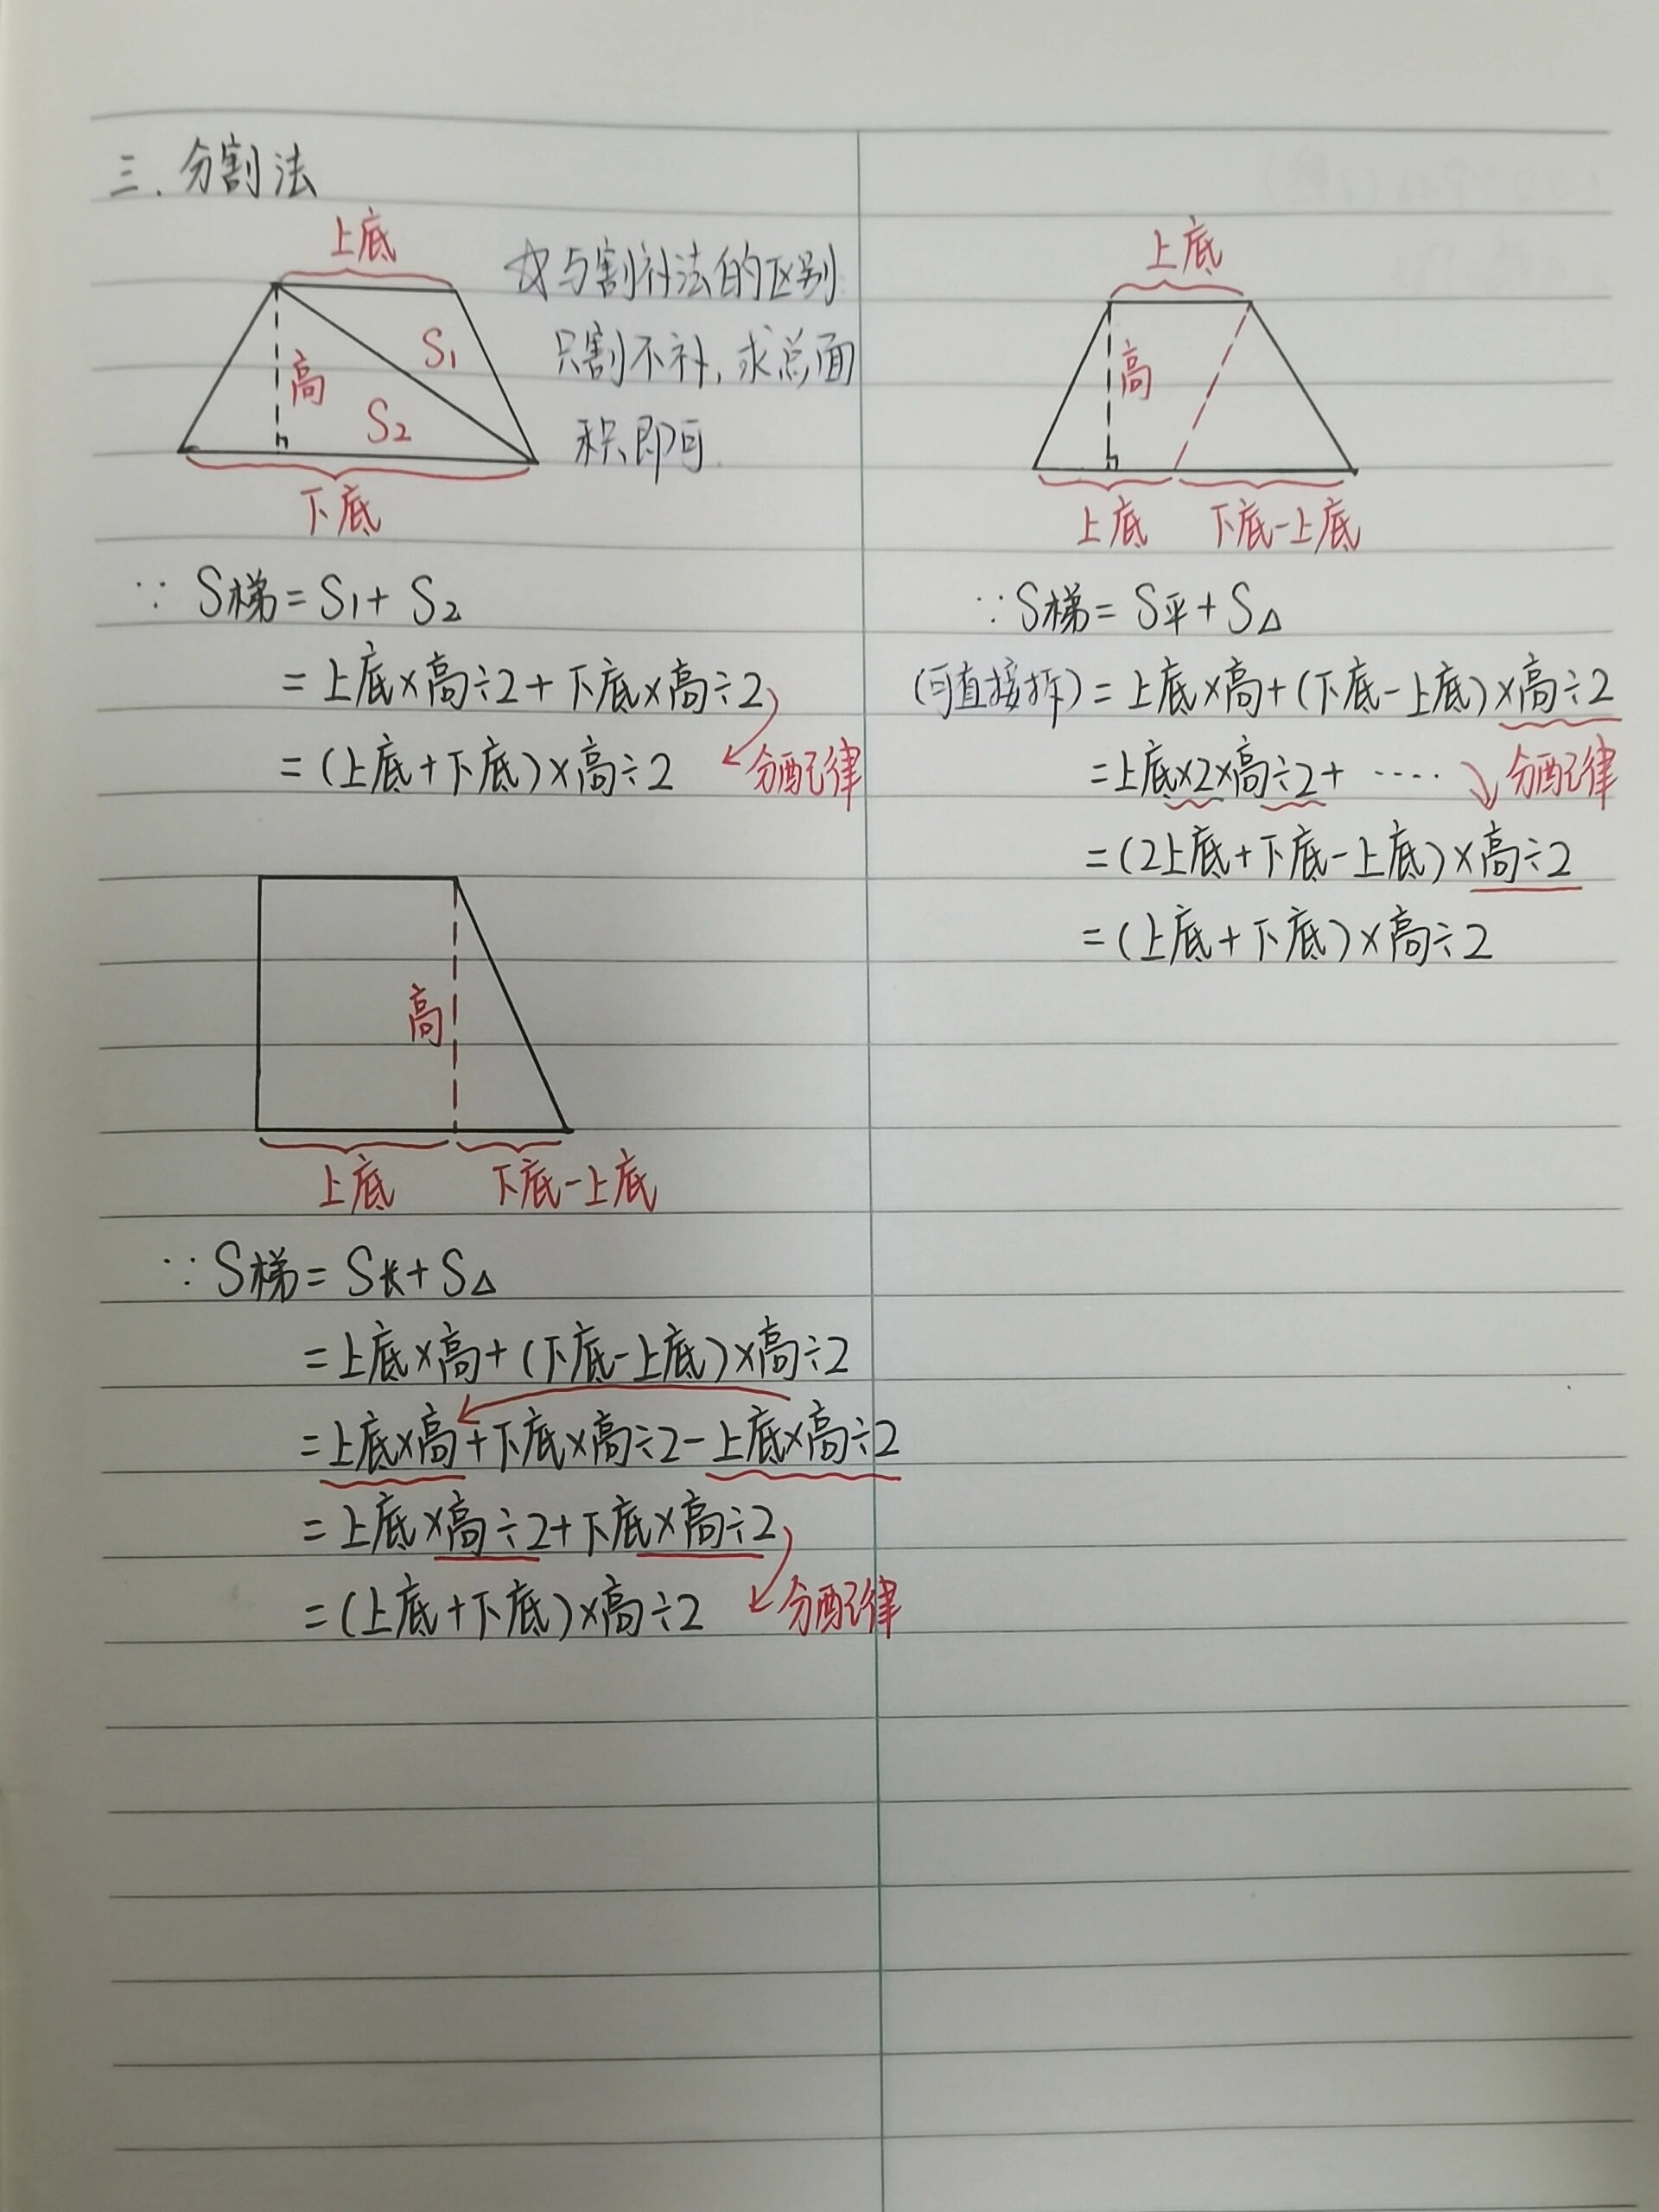 三.分割法
上底
☆与割补法的区别
只割不补,求总面
积即可
S1
高
S2
下底
∵ S梯=S1+S2
=上底×高÷2+下底×高÷2
=(上底+下底)×高÷2 分配律
高
上底 下底-上底
∵S梯=S长+S△
=上底×高+(下底-上底)×高÷2
=上底×高+下底×高÷2-上底×高÷2
=上底×高÷2+下底×高÷2
=(上底+下底)×高÷2 分配律
上底
高
上底 下底-上底
∵S梯=S平+S△
(可直接拆)=上底×高+(下底-上底)×高÷2
=上底×2×高÷2+ ····· 分配律
=(2上底+下底-上底)×高÷2
=(上底+下底)×高÷2